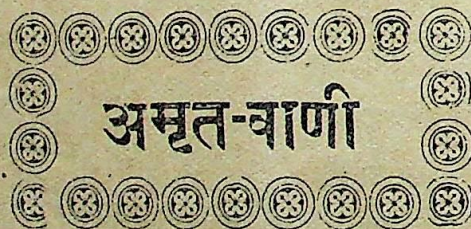 अमृत-वाणी